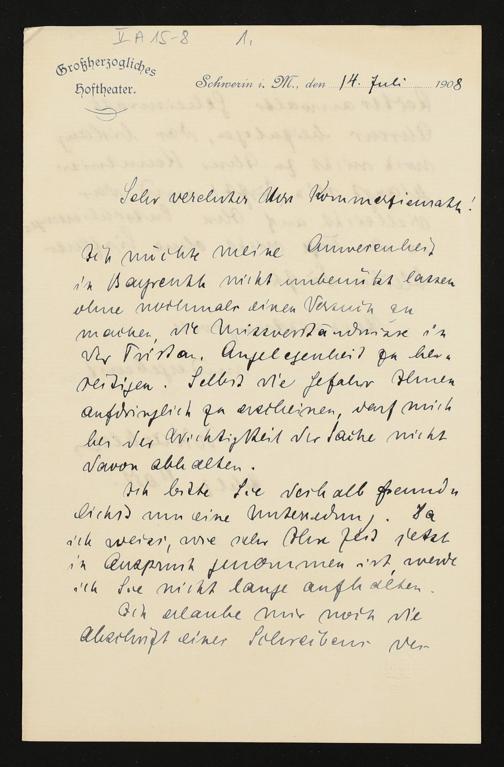 V A 15-8 1.
Großherzogliches
Hoftheater.
Schwerin i. M., den 14. Juli 1908
Sehr verehrter Herr Kommerzienrath!
Ich möchte meine Anwesenheit
in Bayreuth nicht unbenützt lassen
ohne nochmals einen Versuch zu
machen, die Missverständnisse in
der Tristan-Angelegenheit zu besei-
tigen. Selbst die Gefahr Ihnen
aufdringlich zu erscheinen, darf mich
bei der Wichtigkeit der Sache nicht
davon abhalten.
Ich bitte Sie deshalb freund-
lichst um eine Unterredung. Da
ich weiss, wie sehr Ihre Zeit jetzt
in Anspruch genommen ist, werde
ich Sie nicht lange aufhalten.
Ich erlaube mir noch die
Abschrift eines Schreibens des